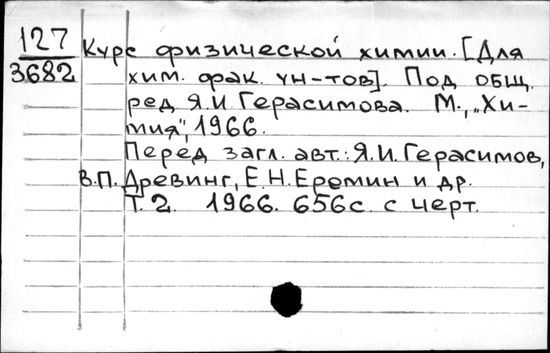 127
3682
Курс физической химии. [Для
хим. фак. ун-тов]. Под общ.
ред Я.И. Герасимова. М., „Хи-
мия", 1966.
Перед загл. авт.: Я.И. Герасимов,
В.П. Древинг, Е.Н. Еремин и др.
Т. 2. 1966. 656с. с черт.